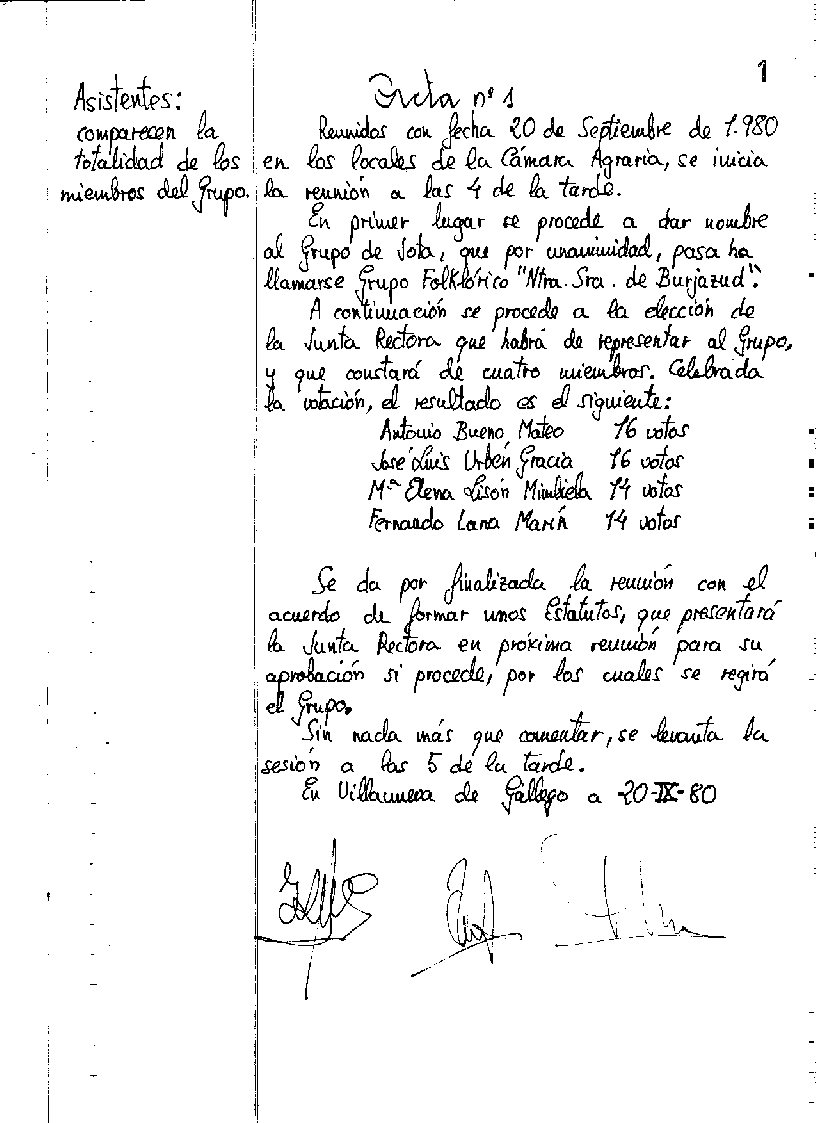 1
Acta nº 1
Asistentes:
comparecen la
totalidad de los
miembros del Grupo.
Reunidos con fecha 20 de Septiembre de 1.980
en los locales de la Cámara Agraria, se inicia
la reunión a las 4 de la tarde.
En primer lugar se procede a dar nombre
al Grupo de Jota, que por unanimidad, pasa ha
llamarse Grupo Folklórico "Ntra. Sra. de Burjazud".
A continuación se procede a la elección de
la Junta Rectora que habrá de representar al Grupo,
y que constará de cuatro miembros. Celebrada
la votación, el resultado es el siguiente:
Antonio Bueno Mateo 16 votos
José Luis Urbén Gracia 16 votos
Mª Elena Lisón 14 votos
Fernando Lana Marín 14 votos
Se da por finalizada la reunión con el
acuerdo de formar unos Estatutos, que presentará
la Junta Rectora en próxima reunión para su
aprobación si procede, por los cuales se regirá
el Grupo.
Sin nada más que comentar, se levanta la
sesión a las 5 de la tarde.
En Villanueva de Gállego a 20-IX-80